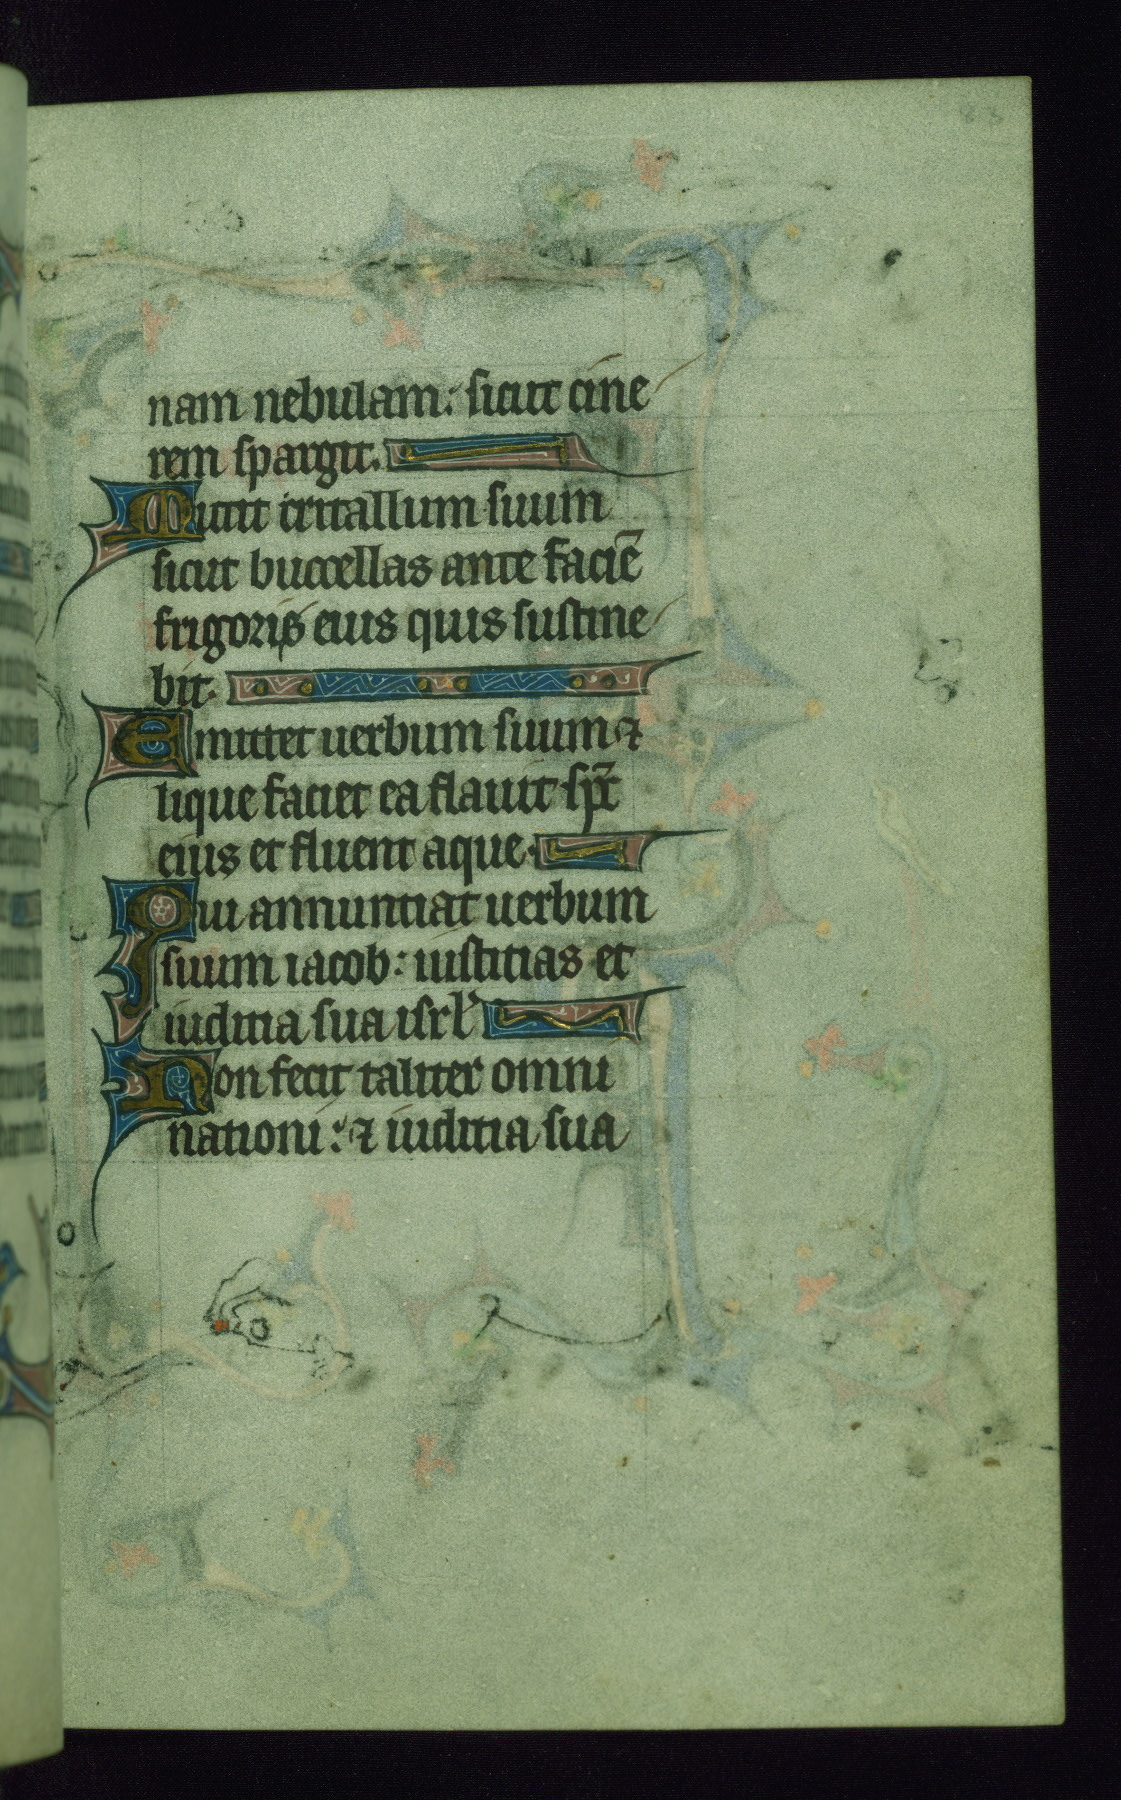 nam nebulam: sicut cine
rem spargit.
Mittit cristallum suum
sicut buccellas ante faciē
frigoris eius quis sustine
bit.
Emittet uerbum suum ⁊
lique faciet ea flauit spc̄
eius et fluent aque.
Qui annuntiat uerbum
suum iacob: iustitias et
iuditia sua isrl'
Non fecit taliter omni
nationi: ⁊ iuditia sua